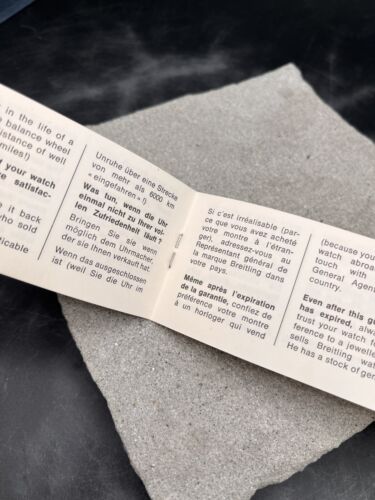 in the life of a
balance wheel
istance of well
miles!)
your watch
satisfac-
it back
who sold
icable
Unruhe über eine Strecke
von mehr als 6000 km
« eingefahren » !)
Was tun, wenn die Uhr
einmal nicht zu Ihrer vol-
len Zufriedenheit läuft ?
Bringen Sie sie wenn
möglich dem Uhrmacher,
der sie Ihnen verkauft hat.
Wenn das ausgeschlossen
ist (weil Sie die Uhr im
Si c'est irréalisable (par-
ce que vous avez acheté
votre montre à l'étran-
ger), adressez-vous au
Représentant général de
la marque Breitling dans
votre pays.
Même après l'expiration
de la garantie, confiez de
préférence votre montre
à un horloger qui vend
(because you
watch abroa
touch with
General Agen
country.
Even after this gu
has expired, alwa
trust your watch f
ference to a jewelle
sells Breitling wat
He has a stock of gen